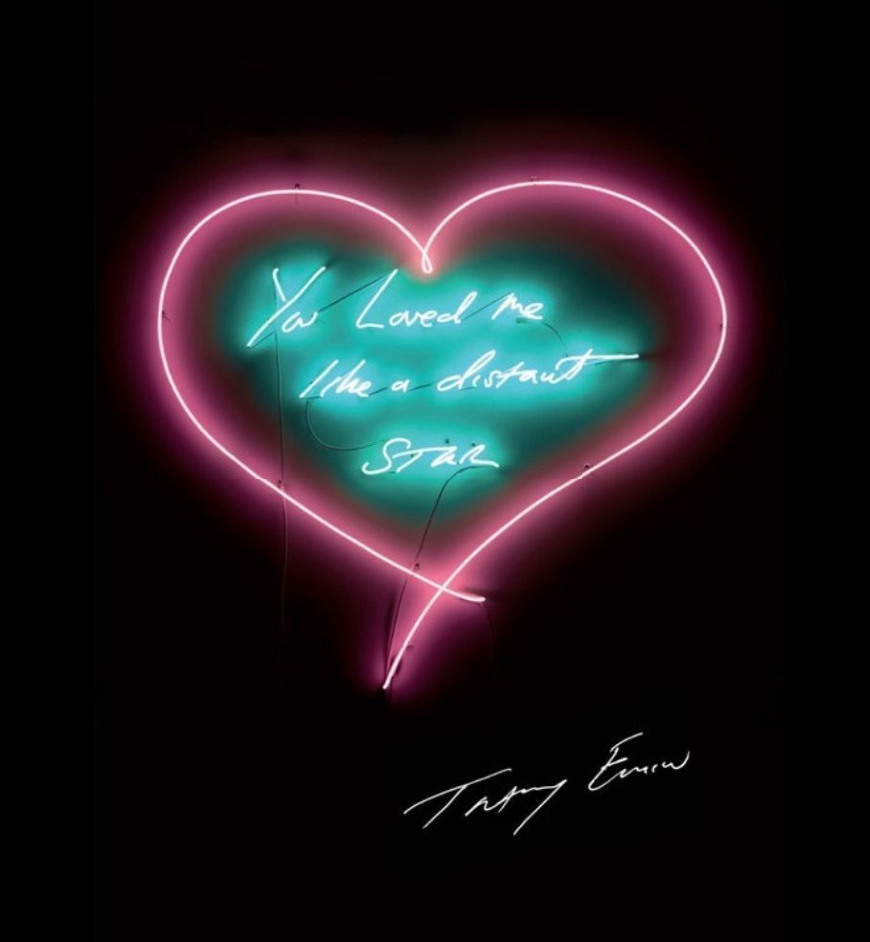 You Loved me
like a distant
STAR
Tracey Emin